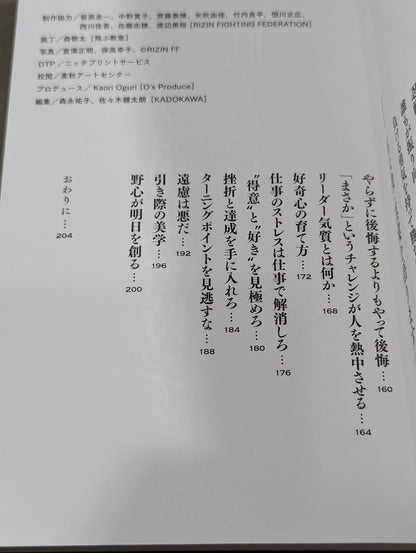 制作協力／笹原圭一、中野寛子、齊藤泰博、矢吹由佳、竹内良平、恒川正広、
西川佳吾、佐藤志穂、渡辺美桜 [RIZIN FIGHTING FEDERATION]
装丁／森敬太 [飛ぶ教室]
写真／宮澤正明、保高幸子、©RIZIN FF
DTP／ニッタプリントサービス
校閲／麦秋アートセンター
プロデュース／Kaori Oguri [O's Produce]
編集／森永祐子、佐々木健太朗 [KADOKAWA]
やらずに後悔するよりもやって後悔… 160
「まさか」というチャレンジが人を熱中させる… 164
リーダー気質とは何か… 168
好奇心の育て方… 172
仕事のストレスは仕事で解消しろ… 176
“得意”と“好き”を見極めろ… 180
挫折と達成を手に入れろ… 184
ターニングポイントを見逃すな… 188
遠慮は悪だ… 192
引き際の美学… 196
野心が明日を創る… 200
おわりに… 204